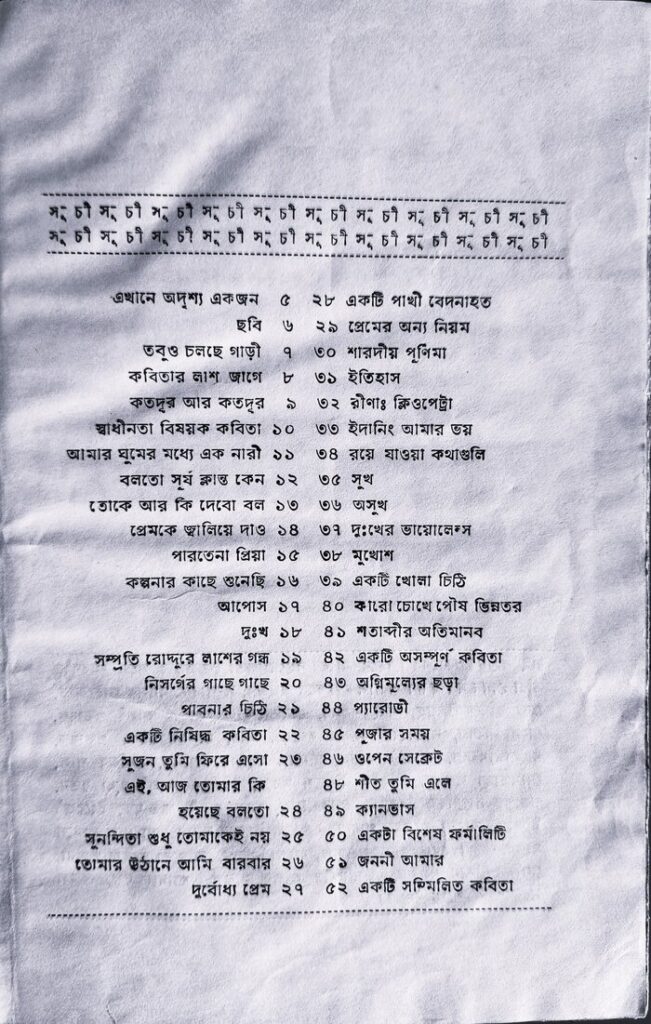 সূচী সূচী সূচী সূচী সূচী সূচী সূচী সূচী সূচী সূচী
সূচী সূচী সূচী সূচী সূচী সূচী সূচী সূচী সূচী সূচী
এখানে অদৃশ্য একজন ৫ ২৮ একটি পাখী বেদনাহত
ছবি ৬ ২৯ প্রেমের অন্য নিয়ম
তবুও চলছে গাড়ী ৭ ৩০ শারদীয় পূর্ণিমা
কবিতার লাশ জাগে ৮ ৩১ ইতিহাস
কতদূর আর কতদূর ৯ ৩২ রীণাঃ ক্লিওপেট্রা
স্বাধীনতা বিষয়ক কবিতা ১০ ৩৩ ইদানিং আমার ভয়
আমার ঘুমের মধ্যে এক নারী ১১ ৩৪ রয়ে যাওয়া কথাগুলি
বলতো সূর্য ক্লান্ত কেন ১২ ৩৫ সুখ
তোকে আর কি দেবো বল ১৩ ৩৬ অসুখ
প্রেমকে জ্বালিয়ে দাও ১৪ ৩৭ দুঃখের ভায়োলেন্স
পারতেনা প্রিয়া ১৫ ৩৮ মুখোশ
কল্পনার কাছে শুনেছি ১৬ ৩৯ একটি খোলা চিঠি
আপোস ১৭ ৪০ কারো চোখে পৌষ ভিন্নতর
দুঃখ ১৮ ৪১ শতাব্দীর অতিমানব
সম্প্রতি রোদ্দুরে লাশের গন্ধ ১৯ ৪২ একটি অসম্পূর্ণ কবিতা
নিসর্গের গাছে গাছে ২০ ৪৩ অগ্নিমূল্যের ছড়া
পাবনার চিঠি ২১ ৪৪ প্যারোডী
একটি নিষিদ্ধ কবিতা ২২ ৪৫ পূজার সময়
সুজন তুমি ফিরে এসো ২৩ ৪৬ ওপেন সেক্রেট
এই, আজ তোমার কি ৪৮ শীত তুমি এলে
হয়েছে বলতো ২৪ ৪৯ ক্যানভাস
সুনন্দিতা শুধু তোমাকেই নয় ২৫ ৫০ একটা বিশেষ ফর্মালিটি
তোমার উঠানে আমি বারবার ২৬ ৫১ জননী আমার
দুর্বোধ্য প্রেম ২৭ ৫২ একটি সম্মিলিত কবিতা